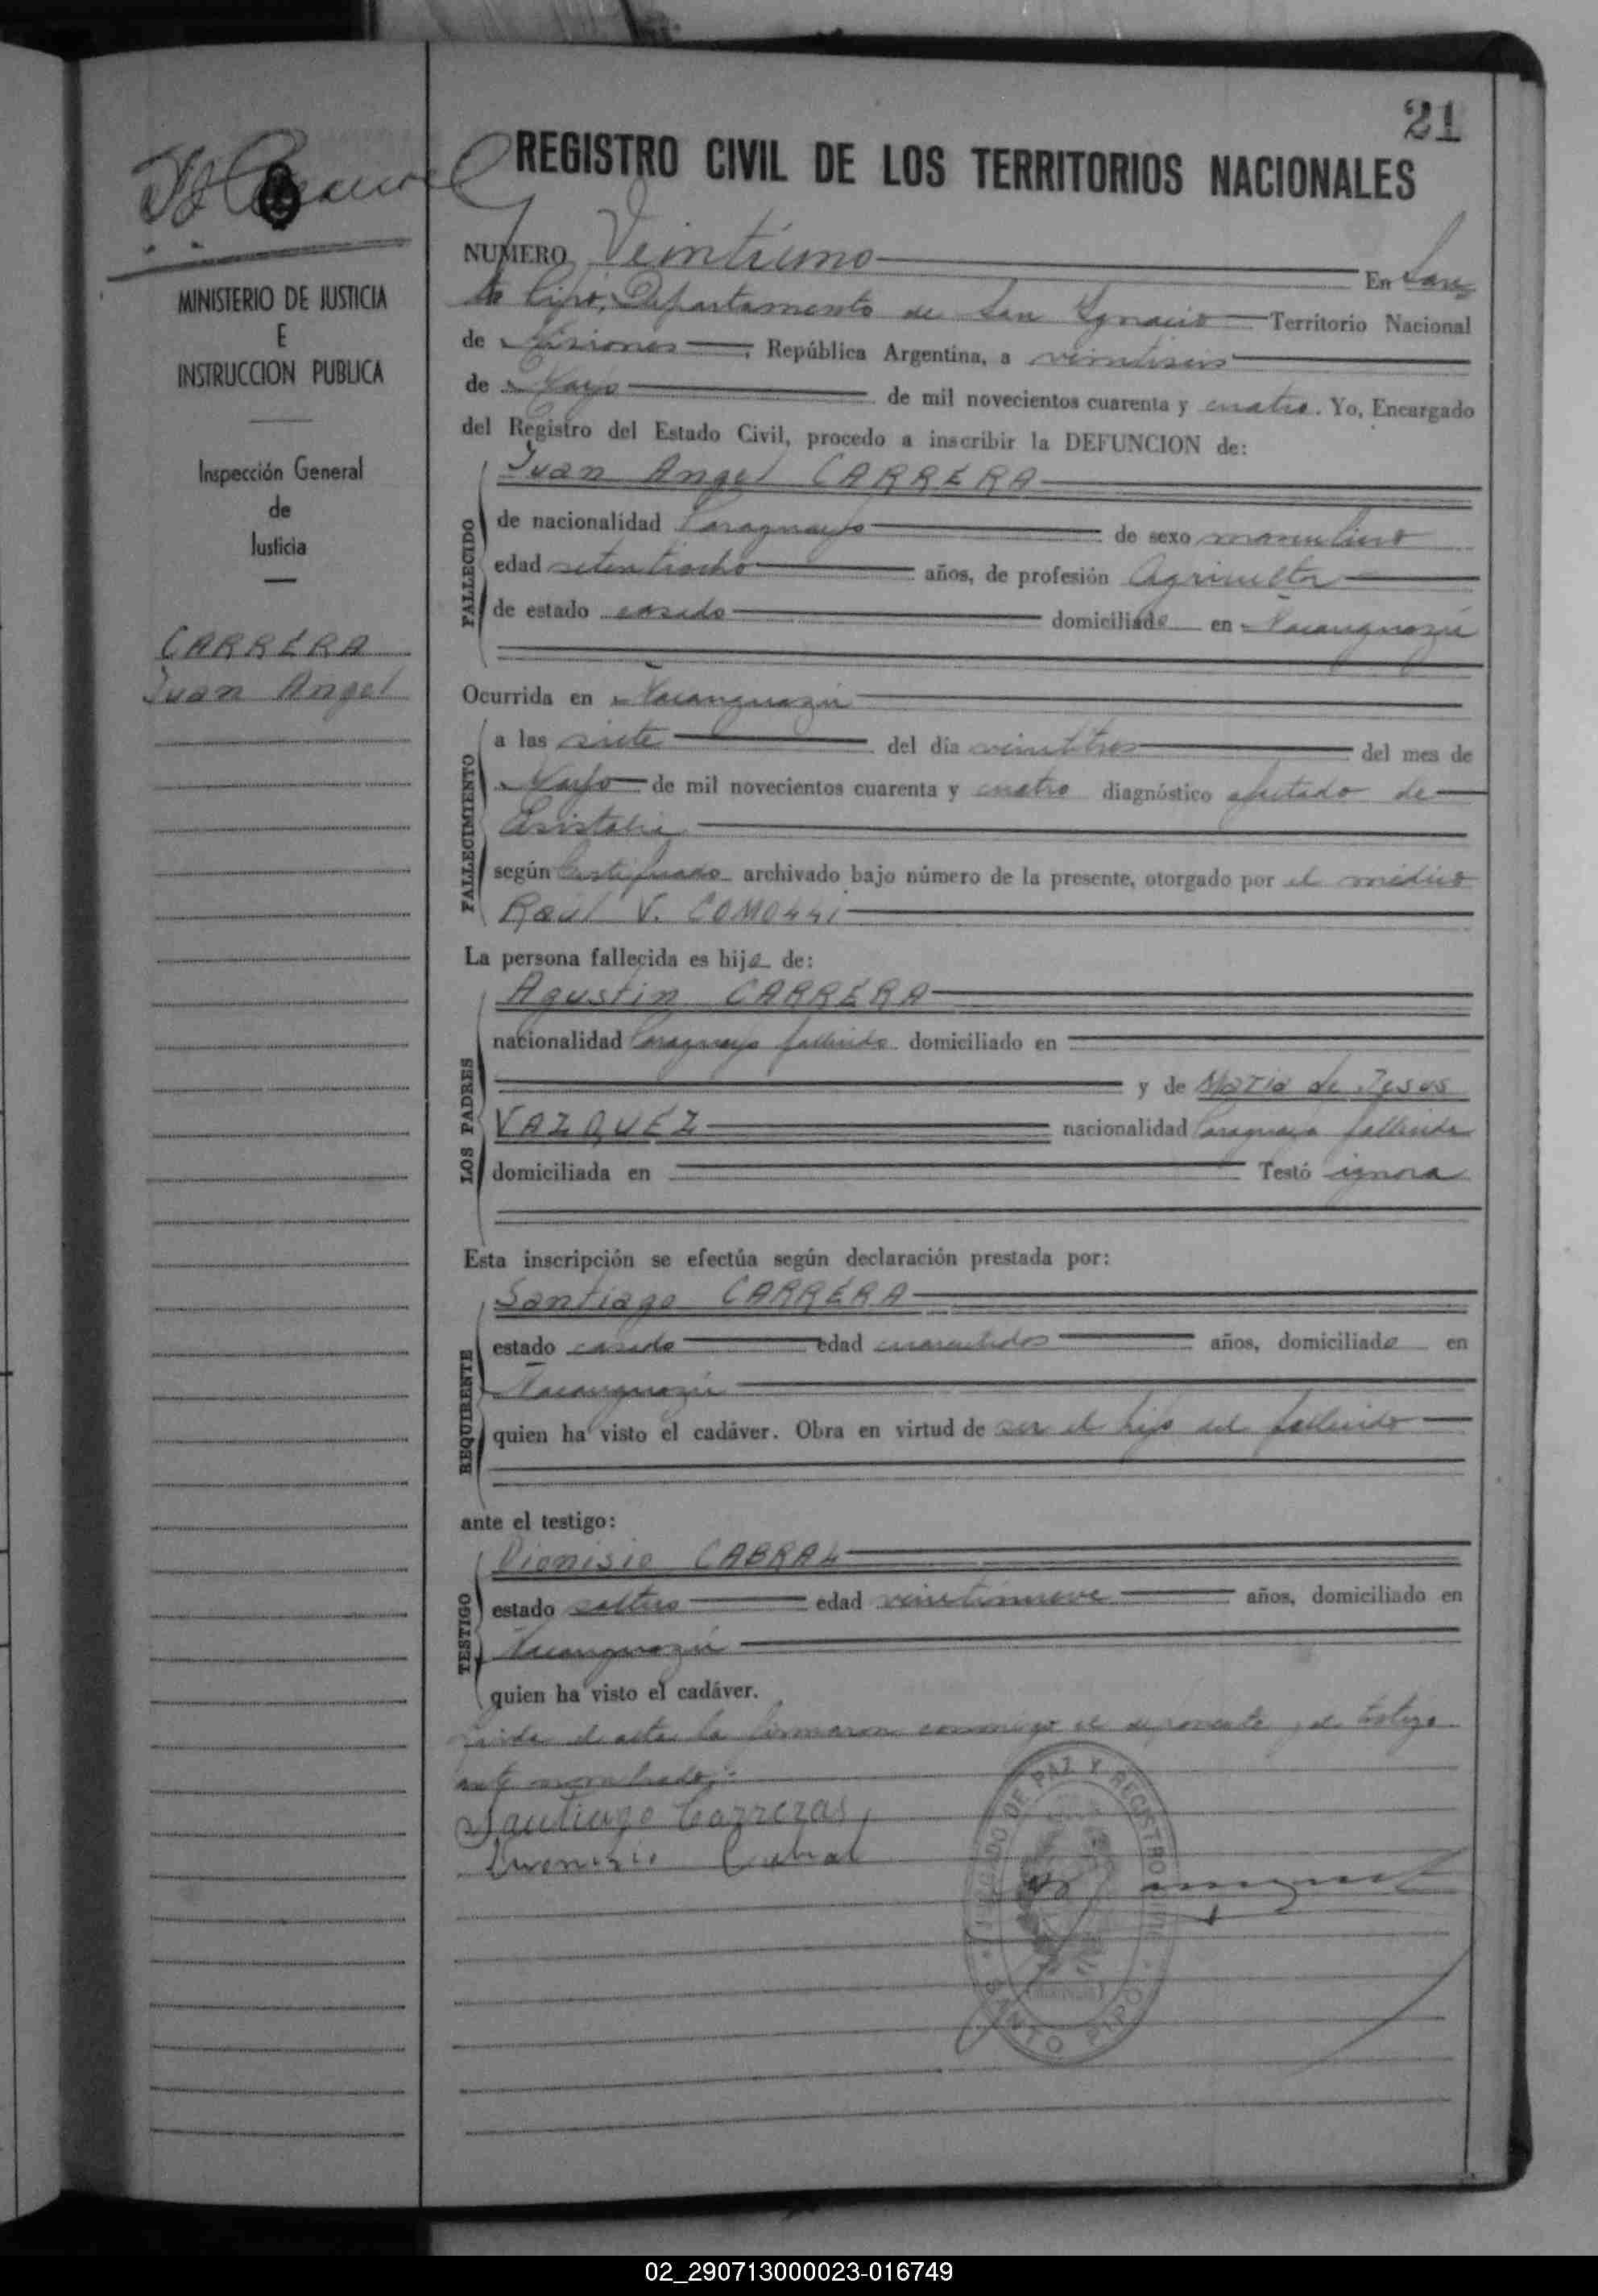 21
REGISTRO CIVIL DE LOS TERRITORIOS NACIONALES
MINISTERIO DE JUSTICIA
E
INSTRUCCION PUBLICA
Inspección General
de
Justicia
CARRERA
Juan Angel
NUMERO Veintiuno En San
to Pipó, Departamento de San Ignacio Territorio Nacional
de Misiones, República Argentina, a veintiseis
de Mayo de mil novecientos cuarenta y cuatro. Yo, Encargado
del Registro del Estado Civil, procedo a inscribir la DEFUNCION de:
Juan Angel CARRERA
FALLECIDO
de nacionalidad Paraguayo de sexo masculino
edad setentiocho años, de profesión Agricultor
de estado casado domiciliado en Ñacanguazú
Ocurrida en Ñacanguazú
FALLECIMIENTO
a las siete del día veintitres del mes de
Mayo de mil novecientos cuarenta y cuatro diagnóstico afectado de
según Certificado archivado bajo número de la presente, otorgado por el médico
Raúl V. COMOLLI
La persona fallecida es hijo de:
LOS PADRES
Agustin CARRERA
nacionalidad Paraguayo fallecido domiciliado en
y de Maria de Jesus
VAZQUEZ nacionalidad Paraguaya fallecida
domiciliada en Testó ignora
Esta inscripción se efectúa según declaración prestada por:
REQUIRENTE
Santiago CARRERA
estado casado edad cuarentidos años, domiciliado en
Ñacanguazú
quien ha visto el cadáver. Obra en virtud de ser el hijo del fallecido
ante el testigo:
TESTIGO
Dionisio CABRAL
estado soltero edad veintinueve años, domiciliado en
Ñacanguazú
quien ha visto el cadáver.
Leida el acta la firmaron conmigo el deponente y el testigo
nombrado.
Santiago Carreras
Cabral
JUZGADO DE PAZ Y REGISTRO CIVIL
SANTO PIPÓ
02_290713000023-016749